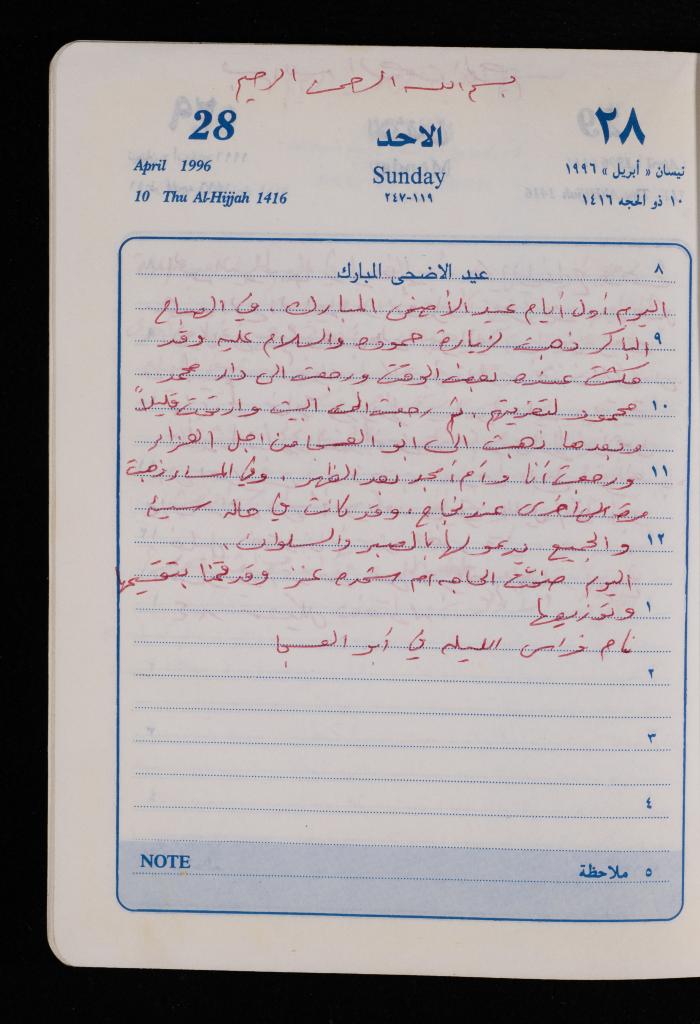 بسم الله الرحمن الرحيم
28 الاحد ٢٨
April 1996 Sunday نيسان « أبريل » ١٩٩٦
10 Thu Al-Hijjah 1416 ٢٤٧-١١٩ ١٠ ذو الحجه ١٤١٦
٨ عيد الاضحى المبارك
اليوم أول أيام عيد الأضحى المبارك. في الصباح
٩ الباكر ذهبت لزيارة حموده والسلام عليه وقد
مكثت عنده بعض الوقت ورجعت الى دار محمد
١٠ محمود لتعزيتهم. ثم رجعت الى البيت وارتحت قليلاً
وبعدها ذهبت الى ابو العسجا من اجل الغداء
١١ ورجعت أنا وأم أمجد بعد الظهر. وفي المساء ذهبت
مرة أخرى عند نجاح. وقد كانت في حاله سيئه
١٢ والجميع يدعو لها بالصبر والسلوان.
اليوم ضحّت الحاجه ام شحده عنز وقد قمنا بتقسيمها
١ وتوزيعها
نام فراس الليله في أبو العسجا
٢
٣
٤
NOTE ٥ ملاحظة